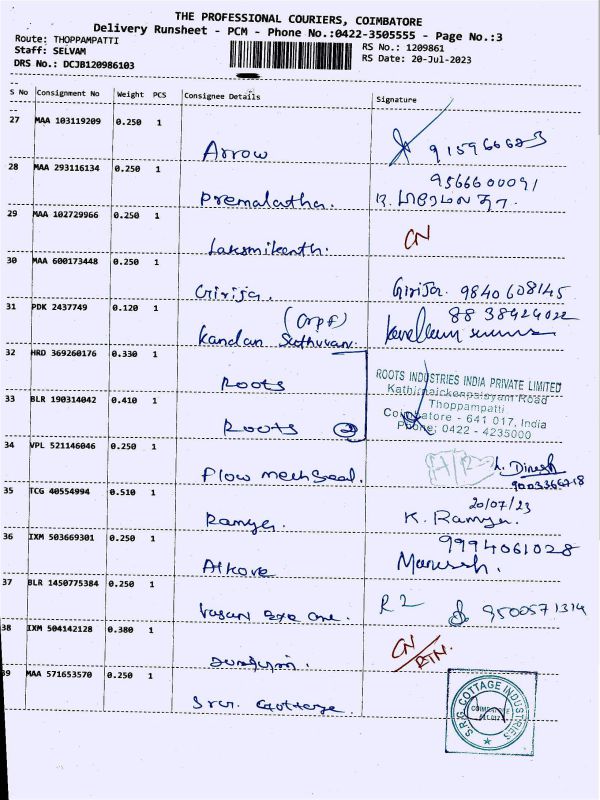 THE PROFESSIONAL COURIERS, COIMBATORE
Delivery Runsheet - PCM - Phone No.:0422-3505555 - Page No.:3
Route: THOPPAMPATTI
RS No.: 1209861
Staff: SELVAM
RS Date: 20-Jul-2023
DRS No.: DCJB120986103
S No Consignment No Weight PCS Consignee Details Signature
27 MAA 103119209 0.250 1
Arrow 9159666623
28 MAA 293116134 0.250 1
9566600091
Premalatha.
29 MAA 102729966 0.250 1
Laksmikanth. CN
30 MAA 600173448 0.250 1
Girija. Girija. 9840608145
31 PDK 2437749 0.120 1
(Crpf) 8838424022
Kandan
32 HRD 369260176 0.330 1
Roots
ROOTS INDUSTRIES INDIA PRIVATE LIMITED
Kathirnaickenpalayam Road
33 BLR 190314042 0.410 1
Thoppampatti
Coimbatore - 641 017, India
Roots 2
Phone: 0422 - 4235000
34 VPL 521146046 0.250 1
Flow mech seal. L. Dinesh
35 TCG 40554994 0.510 1
20/07/23
Ramya. K. Ramya.
36 IXM 503669301 0.250 1
9994061028
37 BLR 1450775384 0.250 1
Vasan eye R2 9500571314
38 IXM 504142128 0.380 1
CN/RTN.
39 MAA 571653570 0.250 1
S.R.G. COTTAGE INDUSTRIES
COIMBATORE
641 017
Cottage